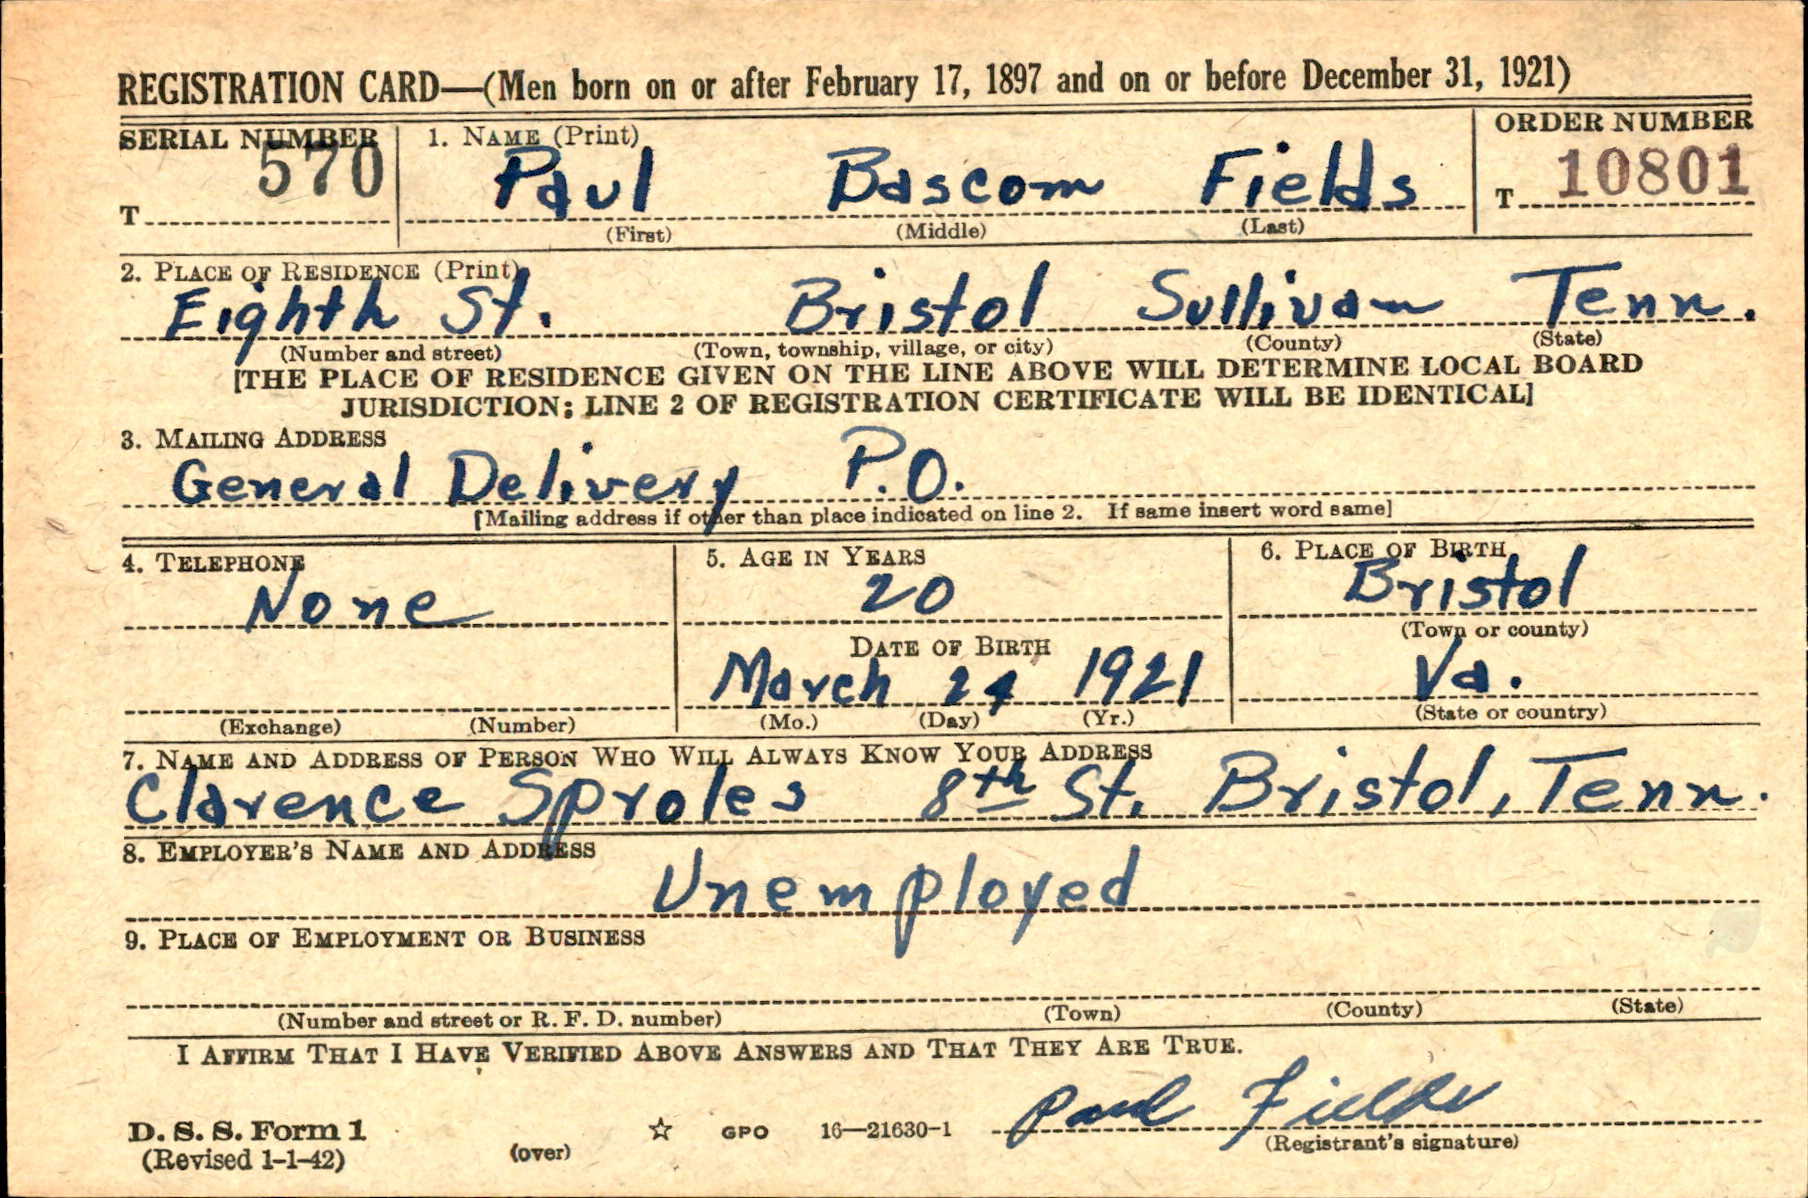 REGISTRATION CARD—(Men born on or after February 17, 1897 and on or before December 31, 1921)
SERIAL NUMBER 1. NAME (Print) ORDER NUMBER
T 570 Paul Bascom Fields T 10801
(First) (Middle) (Last)
2. PLACE OF RESIDENCE (Print)
Eighth St. Bristol Sullivan Tenn.
(Number and street) (Town, township, village, or city) (County) (State)
[THE PLACE OF RESIDENCE GIVEN ON THE LINE ABOVE WILL DETERMINE LOCAL BOARD
JURISDICTION; LINE 2 OF REGISTRATION CERTIFICATE WILL BE IDENTICAL]
3. MAILING ADDRESS
General Delivery P.O.
[Mailing address if other than place indicated on line 2. If same insert word same]
4. TELEPHONE 5. AGE IN YEARS 6. PLACE OF BIRTH
None 20 Bristol
(Town or county)
DATE OF BIRTH
March 24 1921 Va.
(Exchange) (Number) (Mo.) (Day) (Yr.) (State or country)
7. NAME AND ADDRESS OF PERSON WHO WILL ALWAYS KNOW YOUR ADDRESS
Clarence Sproles 8th St. Bristol, Tenn.
8. EMPLOYER'S NAME AND ADDRESS
Unemployed
9. PLACE OF EMPLOYMENT OR BUSINESS
(Number and street or R. F. D. number) (Town) (County) (State)
I AFFIRM THAT I HAVE VERIFIED ABOVE ANSWERS AND THAT THEY ARE TRUE.
Paul Fields
D. S. S. Form 1 (over) ☆ GPO 16—21630-1 (Registrant's signature)
(Revised 1-1-42)